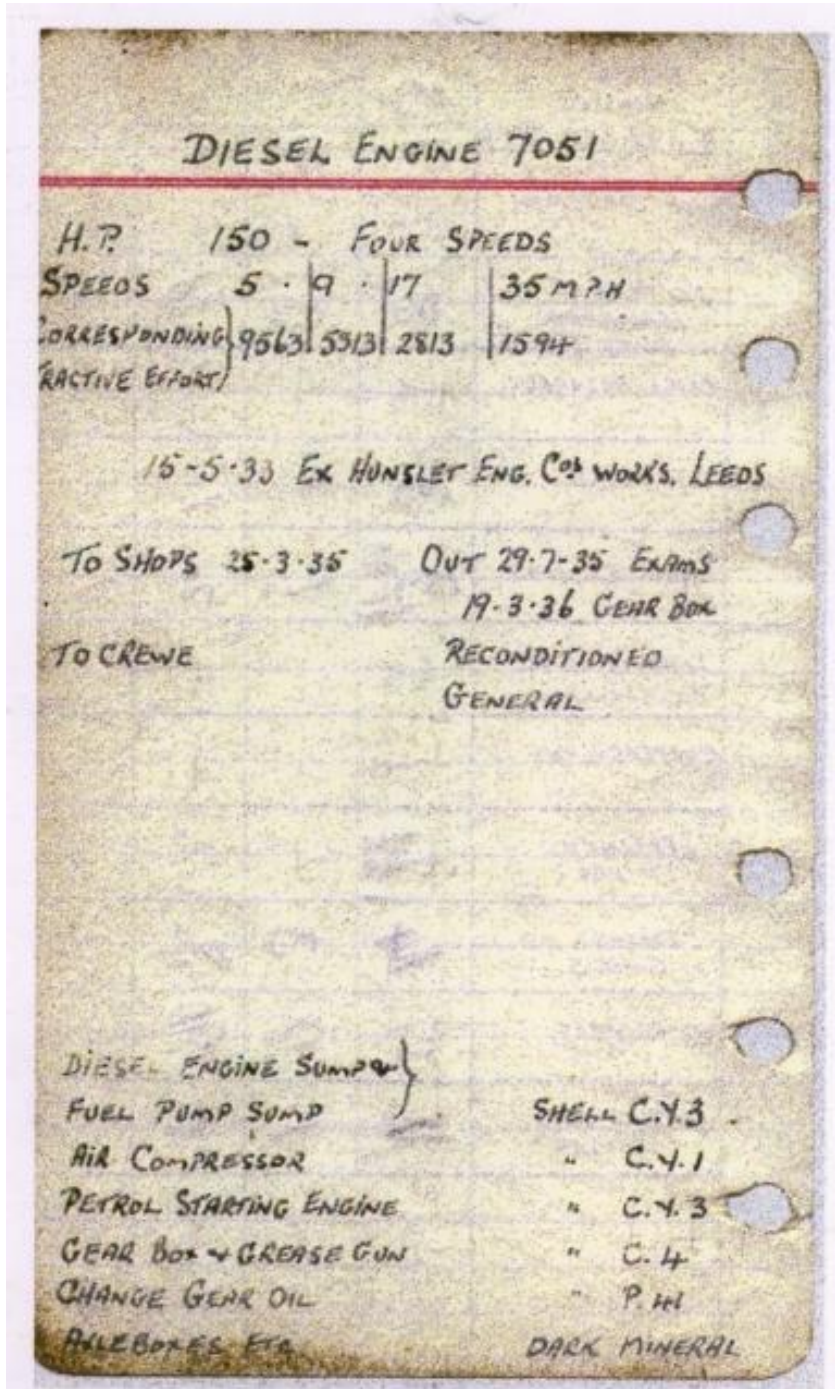 DIESEL ENGINE 7051
H.P. 150 - FOUR SPEEDS
SPEEDS 5 . 9 . 17 35 MPH
CORRESPONDING 9563 5313 2813 1594
TRACTIVE EFFORT
15-5-33 EX HUNSLET ENG. Cos WORKS. LEEDS
TO SHOPS 25-3-35 OUT 29-7-35 EXAMS
19-3-36 GEAR BOX
TO CREWE RECONDITIONED
GENERAL
DIESEL ENGINE SUMP &
FUEL PUMP SUMP SHELL C.Y.3
AIR COMPRESSOR " C.Y.1
PETROL STARTING ENGINE " C.Y.3
GEAR BOX & GREASE GUN " C.4
CHANGE GEAR OIL "
AXLEBOXES ETC DARK MINERAL